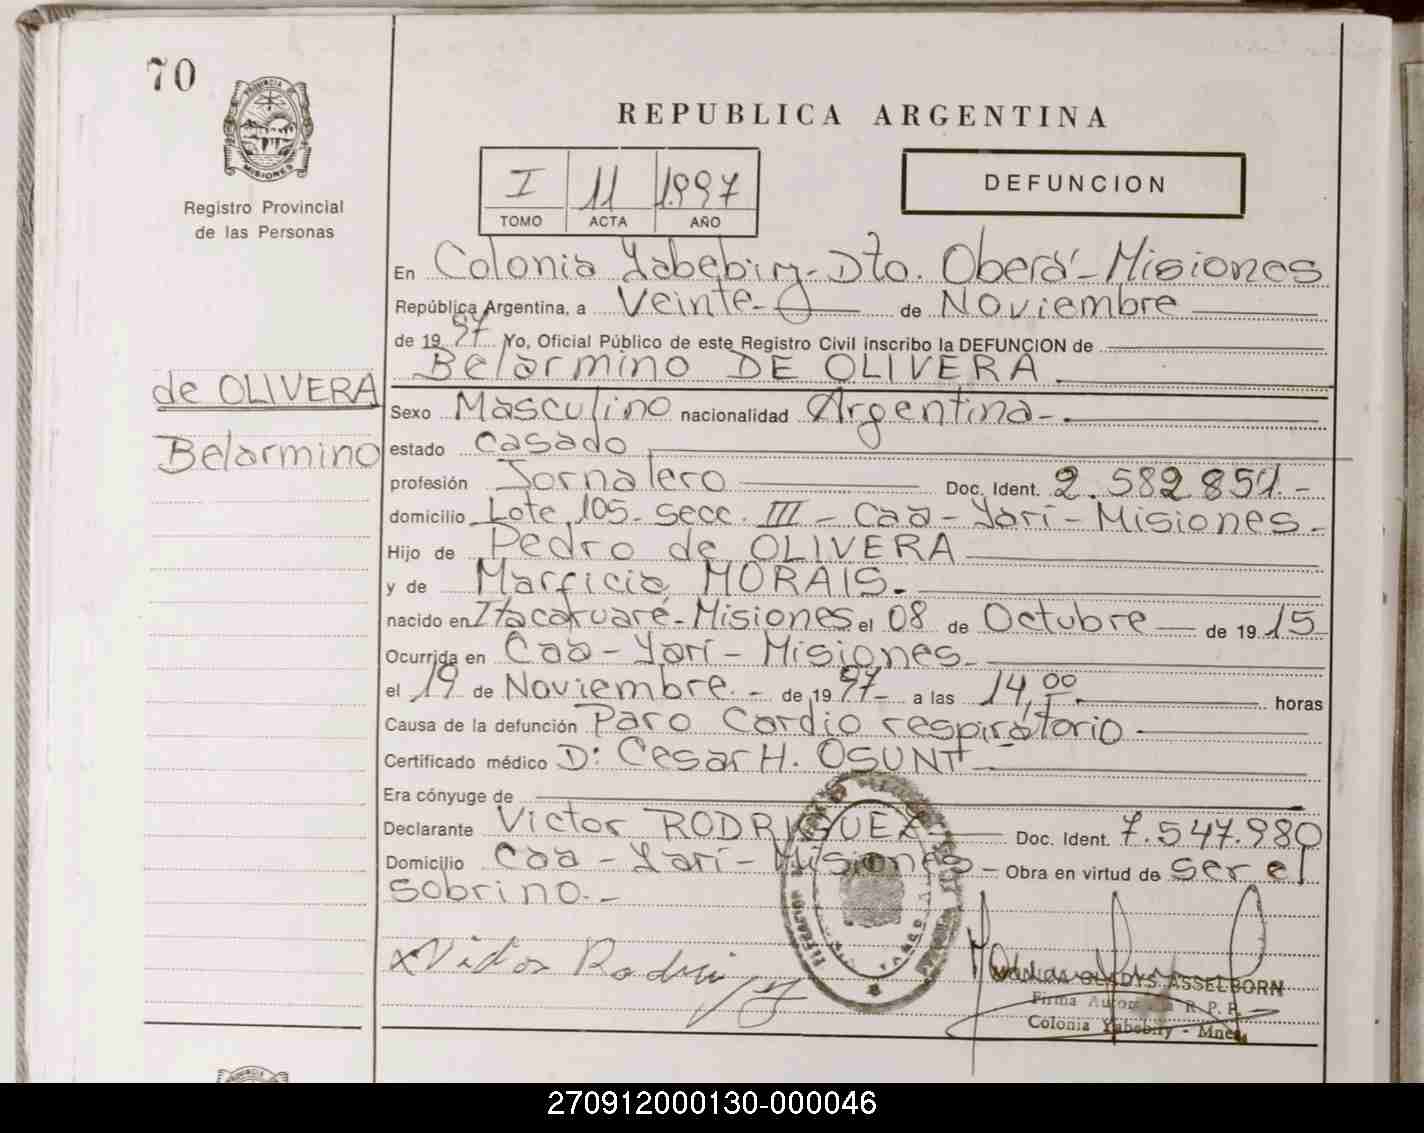 70
PROVINCIA DE
MISIONES
Registro Provincial
de las Personas
REPUBLICA ARGENTINA
I 11 1.997
TOMO ACTA AÑO
DEFUNCION
En Colonia Yabebiry - Dto. Oberá - Misiones
República Argentina, a Veinte - de Noviembre
de 19 97 Yo, Oficial Público de este Registro Civil inscribo la DEFUNCION de
Belarmino DE OLIVERA
de OLIVERA
Belarmino
Sexo Masculino nacionalidad Argentina - .
estado casado
profesión Jornalero Doc. Ident. 2.582 851. -
domicilio Lote 105 - secc. III - Caa - Yarí - Misiones -
Hijo de Pedro de OLIVERA
y de MORAIS. -
nacido en Itacaruaré - Misiones el 08 de Octubre de 19 15
Ocurrida en Caa - Yarí - Misiones -
el 19 de Noviembre. - de 19 97 - a las 14,00 horas
Causa de la defunción Paro Cardio respiratorio
Certificado médico D: Cesar H. OSUNA -
Era cónyuge de
Declarante Victor RODRIGUEZ Doc. Ident. 7.547.980
Domicilio Caa - Yarí - Misiones - Obra en virtud de ser el
sobrino. -
x Victor Rodriguez
GLADYS ASSELBORN
Firma R. P. P.
Colonia Yabebiry - Mnes.
270912000130-000046